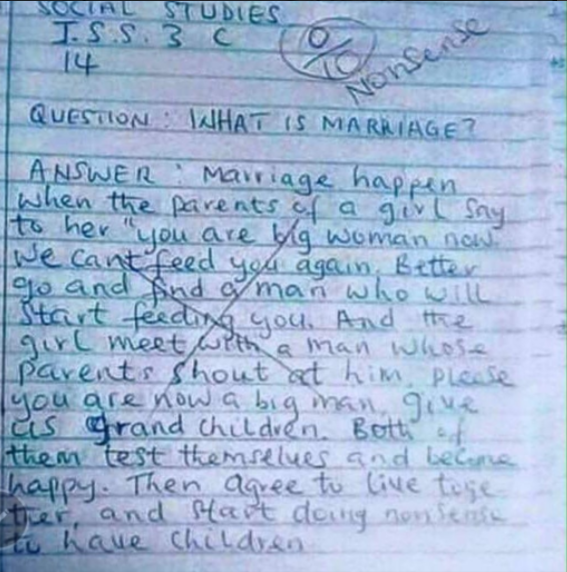 SOCIAL STUDIES
J.S.S. 3 C
14
0/10
Nonsense
QUESTION : WHAT IS MARRIAGE?
ANSWER : Marriage happen
when the parents of a girl say
to her "you are big woman now.
We cant feed you again. Better
go and find a man who will
start feeding you. And the
girl meet with a man whose
parents shout at him, please
you are now a big man, give
us grand children. Both of
them test themselves and become
happy. Then agree to live toge
ther, and start doing nonsense
to have children